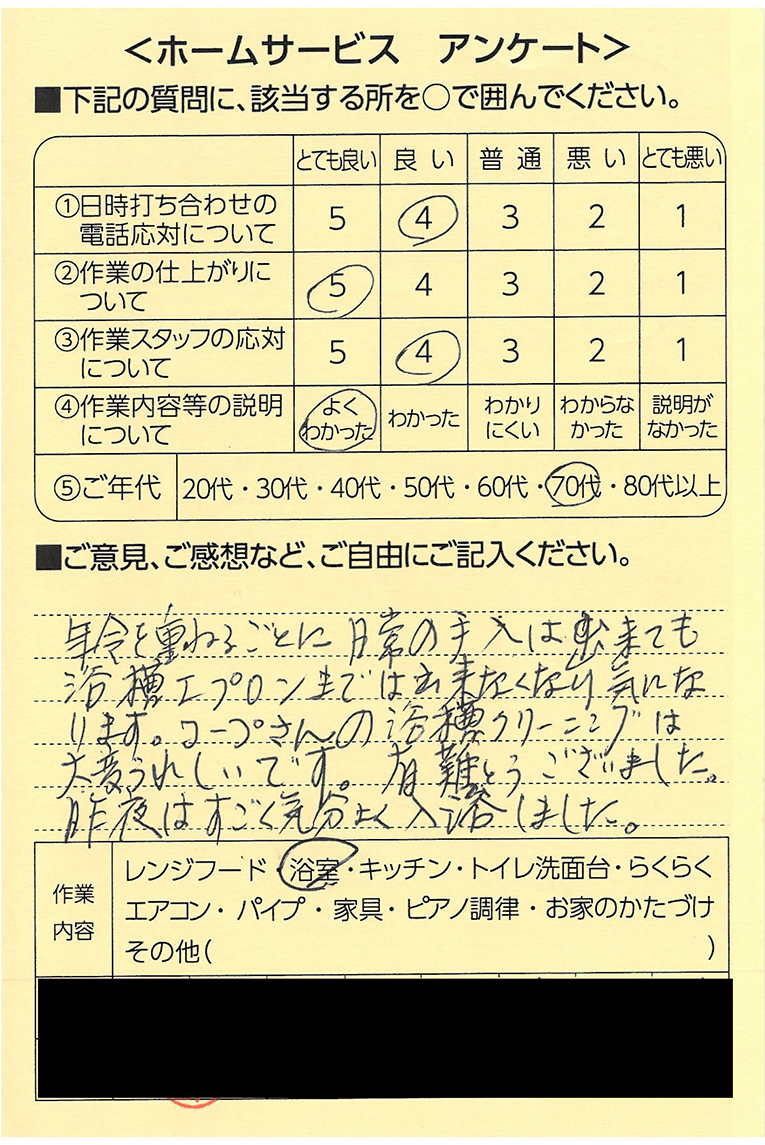 ＜ホームサービス　アンケート＞
■下記の質問に、該当する所を○で囲んでください。
とても良い　良い　普通　悪い　とても悪い
①日時打ち合わせの
電話応対について　5　4　3　2　1
②作業の仕上がりに
ついて　5　4　3　2　1
③作業スタッフの応対
について　5　4　3　2　1
④作業内容等の説明
について　よくわかった　わかった　わかりにくい　わからなかった　説明がなかった
⑤ご年代　20代・30代・40代・50代・60代・70代・80代以上
■ご意見、ご感想など、ご自由にご記入ください。
年令を重ねるごとに日常の手入は出来ても
浴槽エプロンまでは出来なくなり気にな
ります。コープさんの浴槽クリーニングは
大変うれしいです。有難とうございました。
昨夜はすごく気分よく入浴しました。
作業内容
レンジフード・浴室・キッチン・トイレ洗面台・らくらく
エアコン・パイプ・家具・ピアノ調律・お家のかたづけ
その他(　)